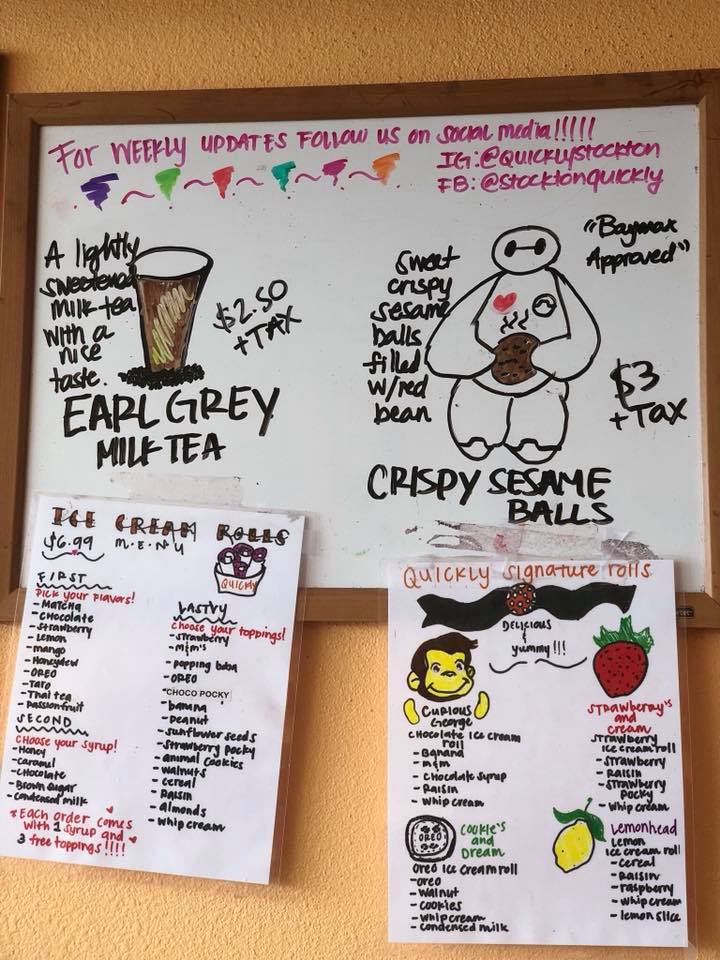 For WEEKLY UPDATES FOLLOW US on Social media!!!!!
IG:@Quicklystockton
FB: @Stocktonquickly
A lightly
sweetened
milk tea
with a
nice
taste.
$2.50
+TAX
EARL GREY
MILK TEA
Sweet
crispy
sesame
balls
filled
w/red
bean
"Baymax
Approved"
$3
+Tax
CRISPY SESAME
BALLS
ICE CREAM ROLLS
$6.99
M.E.N.U
QUICKLY
FIRST
Pick your flavors!
- Matcha
- Chocolate
- Strawberry
- Lemon
- mango
- Honeydew
- OREO
- Taro
- Thai tea
- Passionfruit
SECOND
CHOOSE your syrup!
- Honey
- Caramel
- Chocolate
- Brown sugar
- Condensed milk
*Each order comes
with 1 syrup and
3 free toppings!!!!
LASTLY
choose your toppings!
- Strawberry
- M&M's
- Popping boba
- OREO
-CHOCO POCKY
- banana
- Peanut
- sunflower seeds
- Strawberry pocky
- animal cookies
- walnuts
- cereal
- Raisin
- almonds
- whip cream
QUICKLY signature rolls
DELICIOUS
&
yummy!!!
Curious
George
CHocolate ice cream
roll
- Banana
- m&m
- Chocolate syrup
- Raisin
- whip cream
STRAWBERRY'S
and
cream
STRAWBERRY
ice cream roll
- Strawberry
- Raisin
- Strawberry
Pocky
- whip cream
OREO
COOKIE'S
and
Dream
Oreo ice cream roll
- Oreo
- walnut
- cookies
- whip cream
- condensed milk
Lemonhead
Lemon
ice cream roll
- cereal
- Raisin
- raspberry
- whip cream
- lemon slice